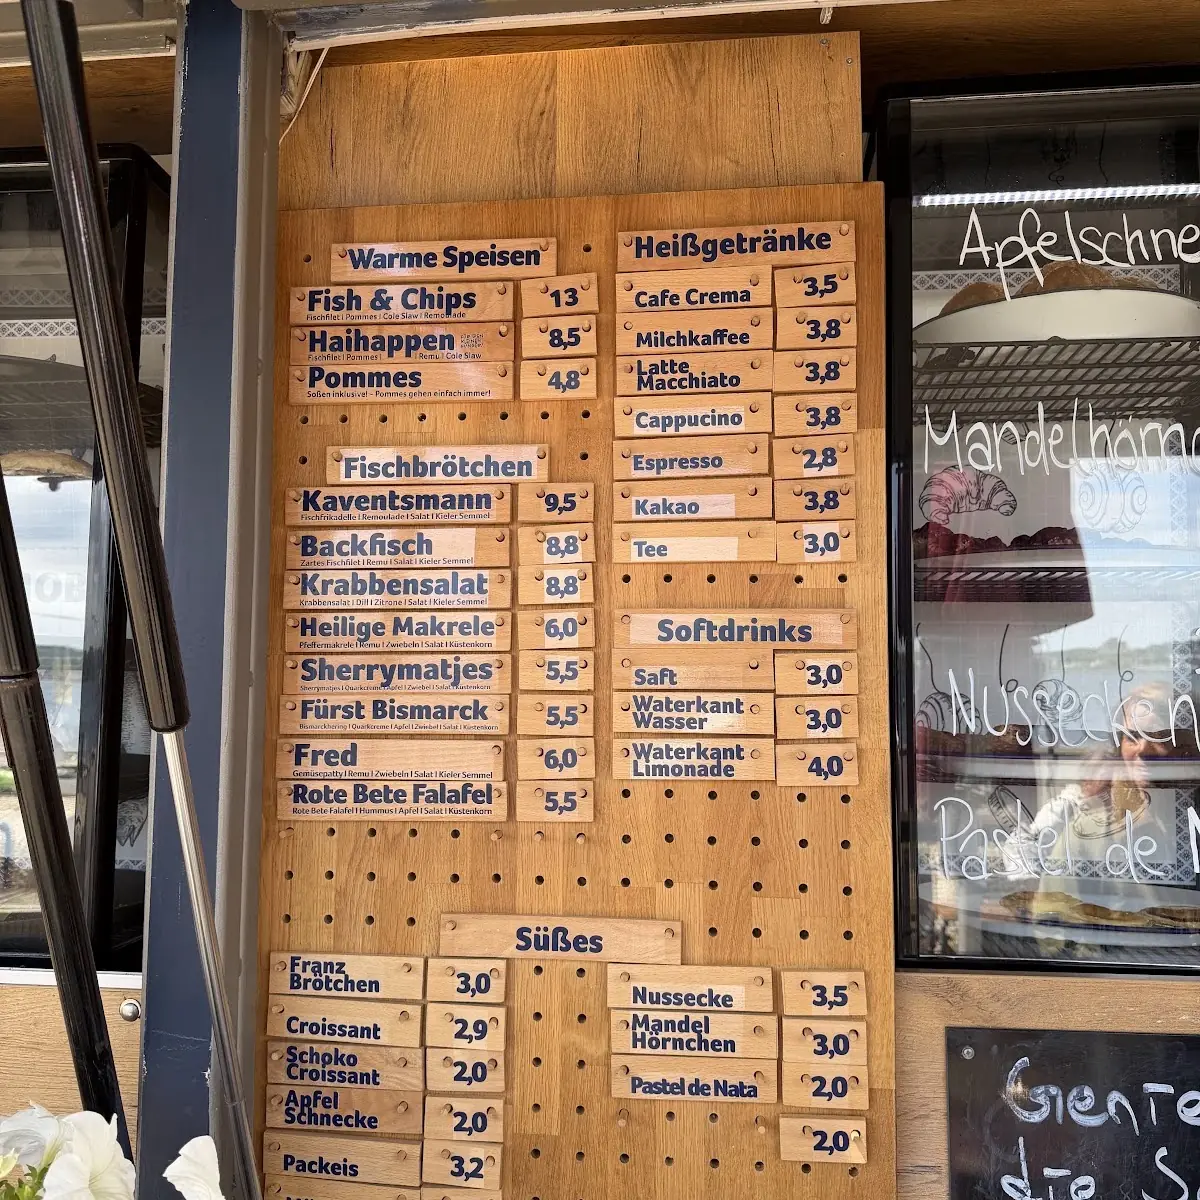 Warme Speisen
Fish & Chips 13
Fischfilet | Pommes | Cole Slaw | Remoulade
Haihappen 8,5
Fischfilet | Pommes | Remu | Cole Slaw
Pommes 4,8
Soßen inklusive! - Pommes gehen einfach immer!
Fischbrötchen
Kaventsmann 9,5
Fischfrikadelle | Remoulade | Salat | Kieler Semmel
Backfisch 8,8
Zartes Fischfilet | Remu | Salat | Kieler Semmel
Krabbensalat 8,8
Krabbensalat | Dill | Zitrone | Salat | Kieler Semmel
Heilige Makrele 6,0
Pfeffermakrele | Remu | Zwiebeln | Salat | Küstenkorn
Sherrymatjes 5,5
Sherrymatjes | Quarkcreme | Apfel | Zwiebel | Salat | Küstenkorn
Fürst Bismarck 5,5
Bismarckhering | Quarkcreme | Apfel | Zwiebel | Salat | Küstenkorn
Fred 6,0
Gemüsepatty | Remu | Zwiebeln | Salat | Kieler Semmel
Rote Bete Falafel 5,5
Rote Bete Falafel | Hummus | Apfel | Salat | Küstenkorn
Heißgetränke
Cafe Crema 3,5
Milchkaffee 3,8
Latte
Macchiato 3,8
Cappucino 3,8
Espresso 2,8
Kakao 3,8
Tee 3,0
Softdrinks
Saft 3,0
Waterkant
Wasser 3,0
Waterkant
Limonade 4,0
Süßes
Franz
Brötchen 3,0
Croissant 2,9
Schoko
Croissant 2,0
Apfel
Schnecke 2,0
Packeis 3,2
Nussecke 3,5
Mandel
Hörnchen 3,0
Pastel de Nata 2,0
2,0
Apfelschne
Mandelhörn
Nussecken
Pastel de N
die S